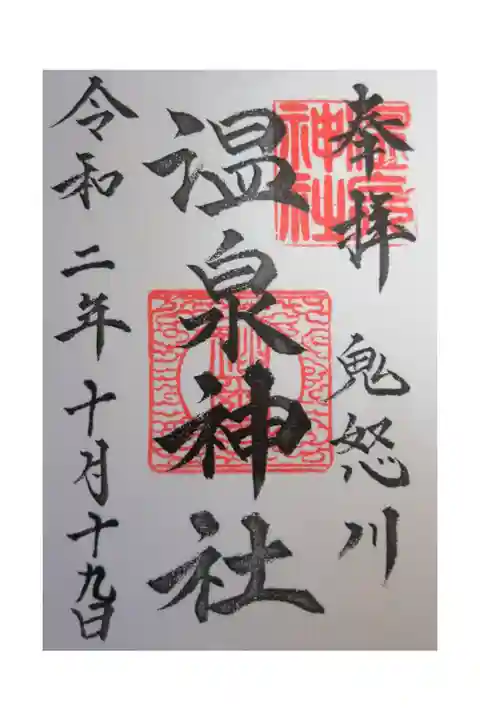 奉拝
鬼怒川
温泉神社
令和二年十月十九日